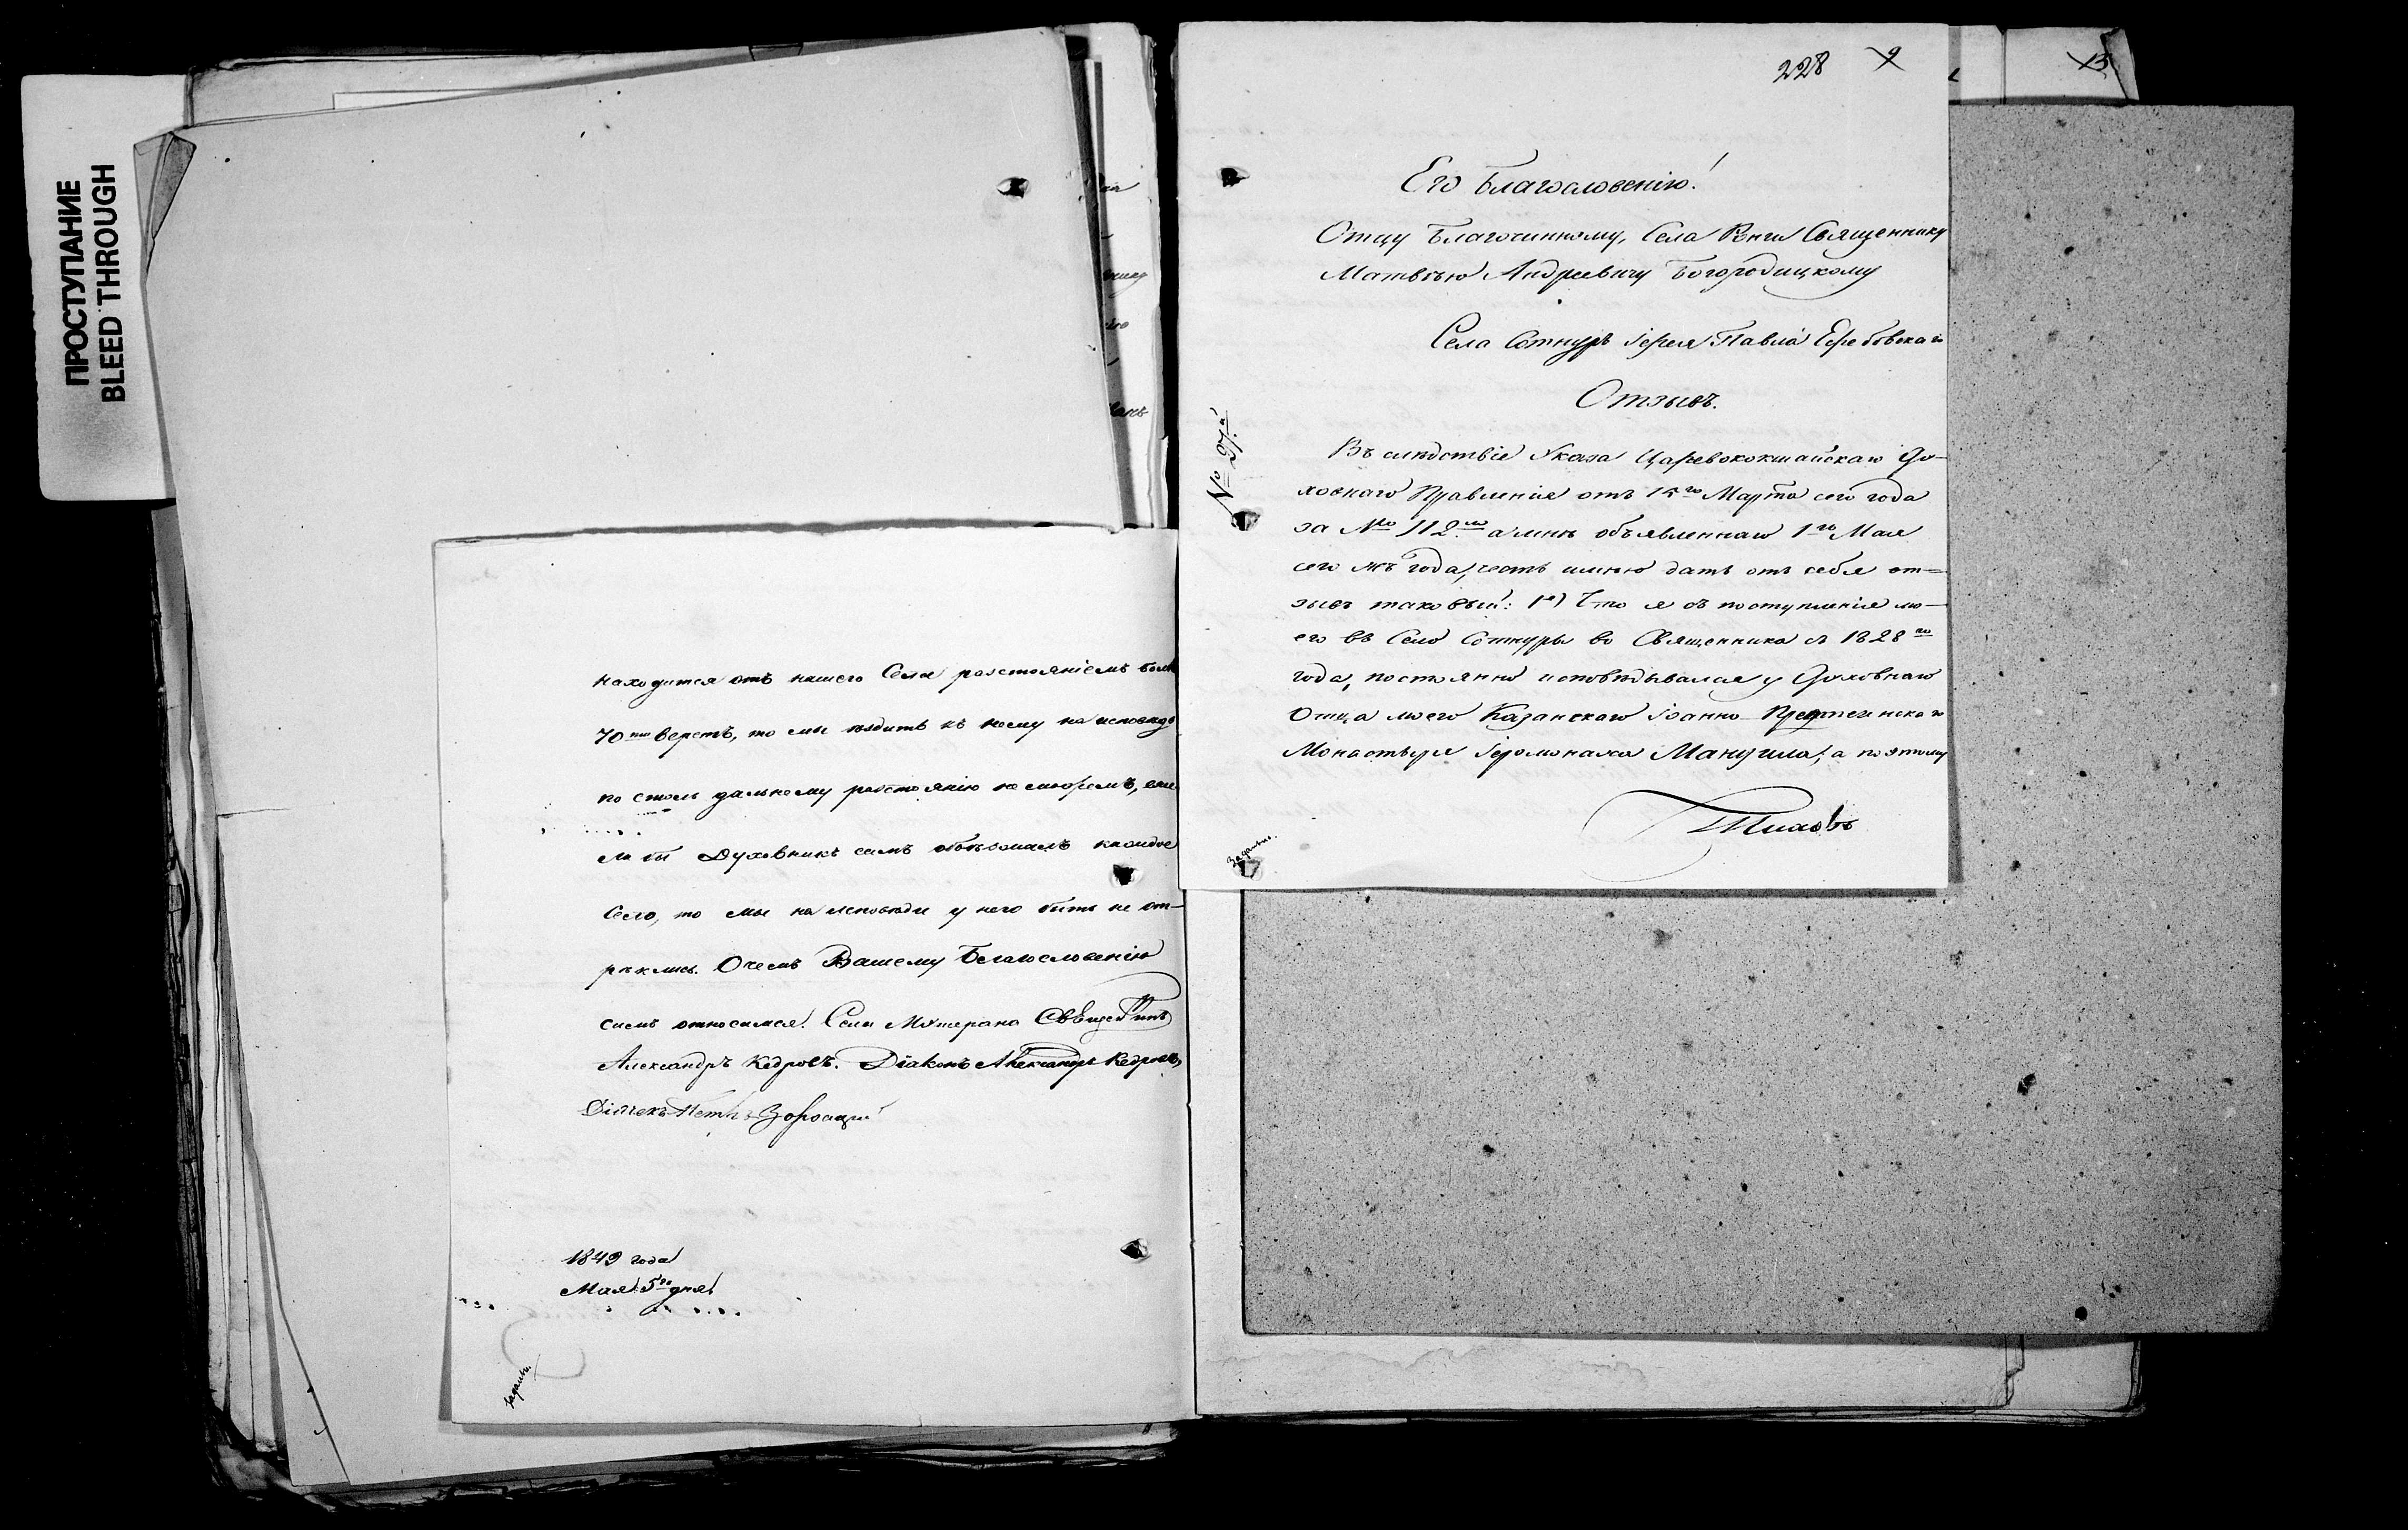 ПРОСТУПАНИЕ
BLEED THROUGH
находится отъ нашего Села разстояніемъ
70ти верстъ, то мы ѣздить къ нему на исповѣдь
по столь дальному разстоянію не можемъ,
ли бы Духовникъ самъ объѣзжалъ каждое
Село, то мы на исповѣди у него быть не от-
реклись. О чемъ Вашему Благословенію
симъ относимся. Села
Александръ Кедровъ. Діаконъ Александръ Кедровъ
Дьячекъ Петръ
1849 года
Мая 5го дня
228 9
13
Его Благословенію!
Отцу Благочинному, Села Ронги Священнику
Матвѣю Андреевичу Богородицкому
Села Сотнуръ Іерея Павла
Отзывъ.
№ 27й
Въ слѣдствіе Указа Царевококшайскаго Ду-
ховнаго Правленія отъ 15го Марта сего года
за №мъ 112мъ а мнѣ объявленнаго 1го Мая
сего жъ года, честь имѣю дать отъ себя от-
зывъ таковый: 1е) Что я съ поступленія мо-
его въ Село Сотнуры во Священника съ 1828го
года, постоянно исповѣдывался у Духовнаго
Отца моего Казанскаго Іоанно-Предтеченскаго
Монастыря Іеромонаха Мануила, а поэтому